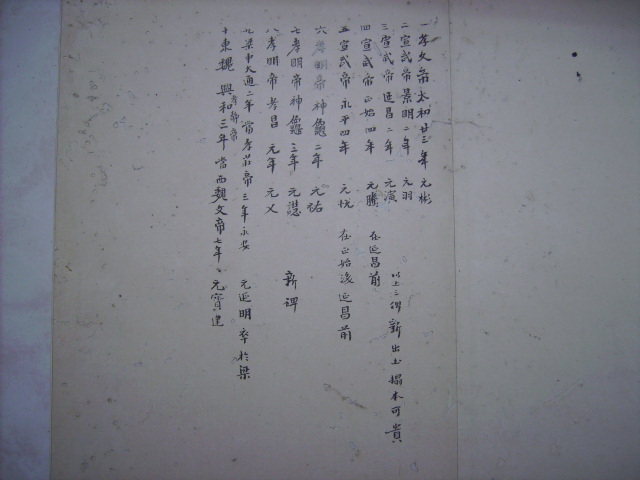 一孝文帝太初廿三年 元彬
二宣武帝景明二年 元羽
三宣武帝延昌二年 元演 以上三碑新出土搨本可貴
四宣武帝正始四年 元騰 在延昌前
五宣武帝永平四年 元忱 在正始後延昌前
六孝明帝神龜二年 元祐
七孝明帝神龜三年 元 新碑
八孝明帝孝昌元年 元乂
九梁中大通二年當孝莊帝三年永安 元延明卒於梁
十東魏孝静帝興和三年當西魏文帝七年 元寶建